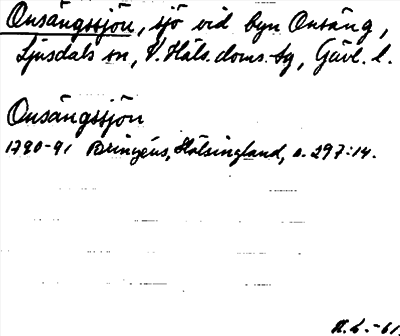 Onsängssjön, sjö vid byn Onsäng,
Ljusdals sn, V. Häls. doms. tg, Gävl. l.
Onsängssjön
1790-91 Bringéus, Hälsingland, s. 297:14.
K.L.-61.